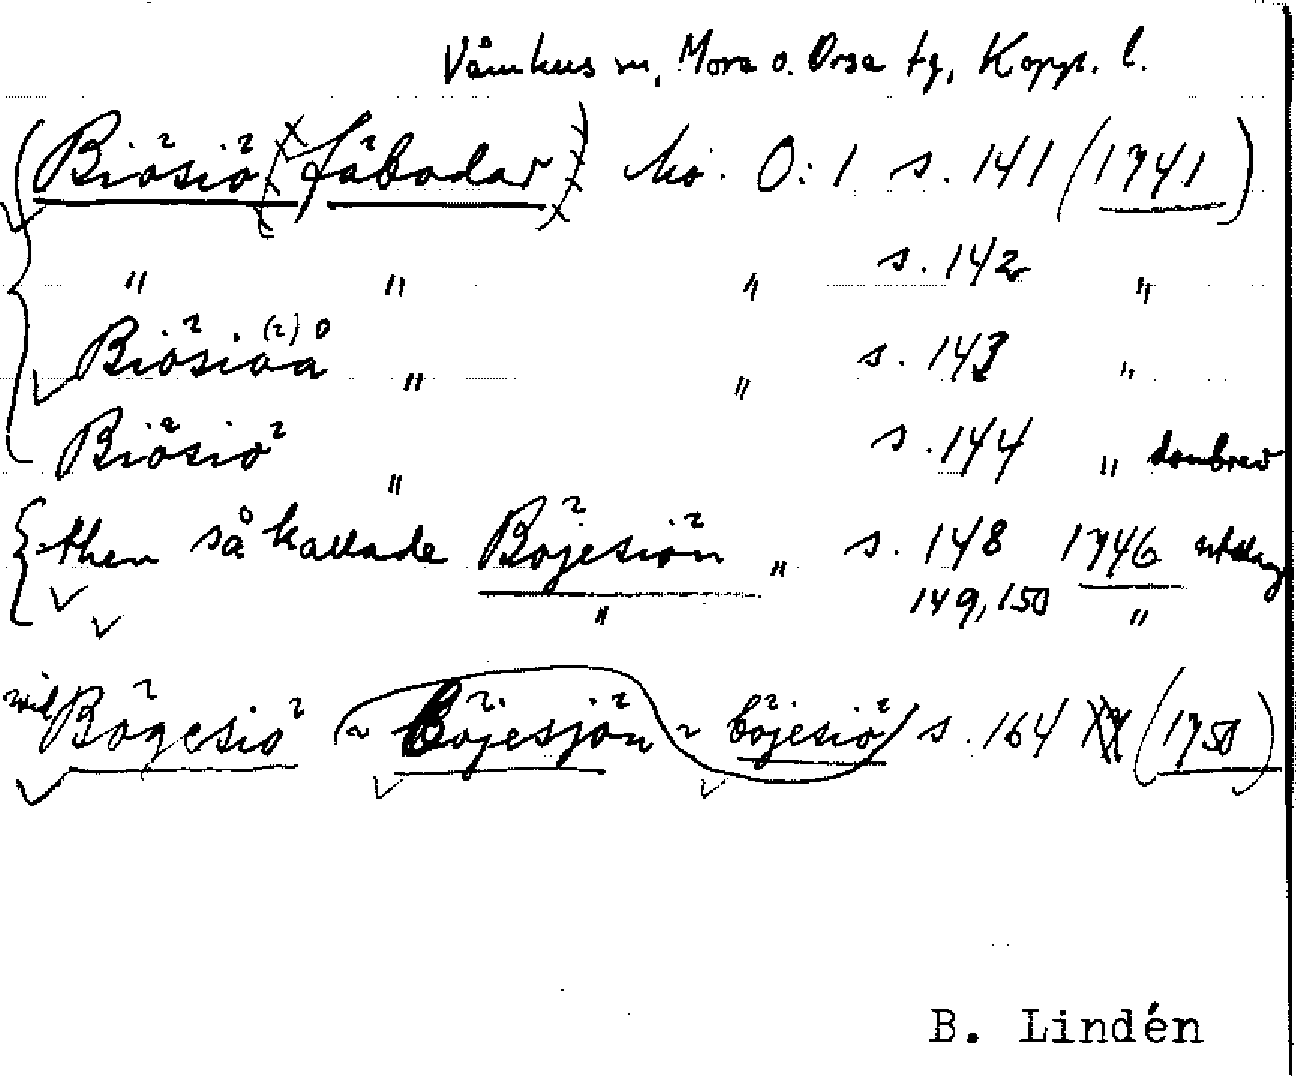 Våmhus sn, Mora o. Orsa tg, Kopp. l.
(Biösiö (fäbodar) ko. O:1 s. 141 (1741)
" " " s. 142 "
Biösiöå " " s. 143 "
Biösiö " s. 144 " dombrev
then så kallade Böjesiön " s. 148 1746 utslag
" 149, 150 "
Bögesiö ~ Böjesjön ~ böjesiö s. 164 (1750)
B. Lindén